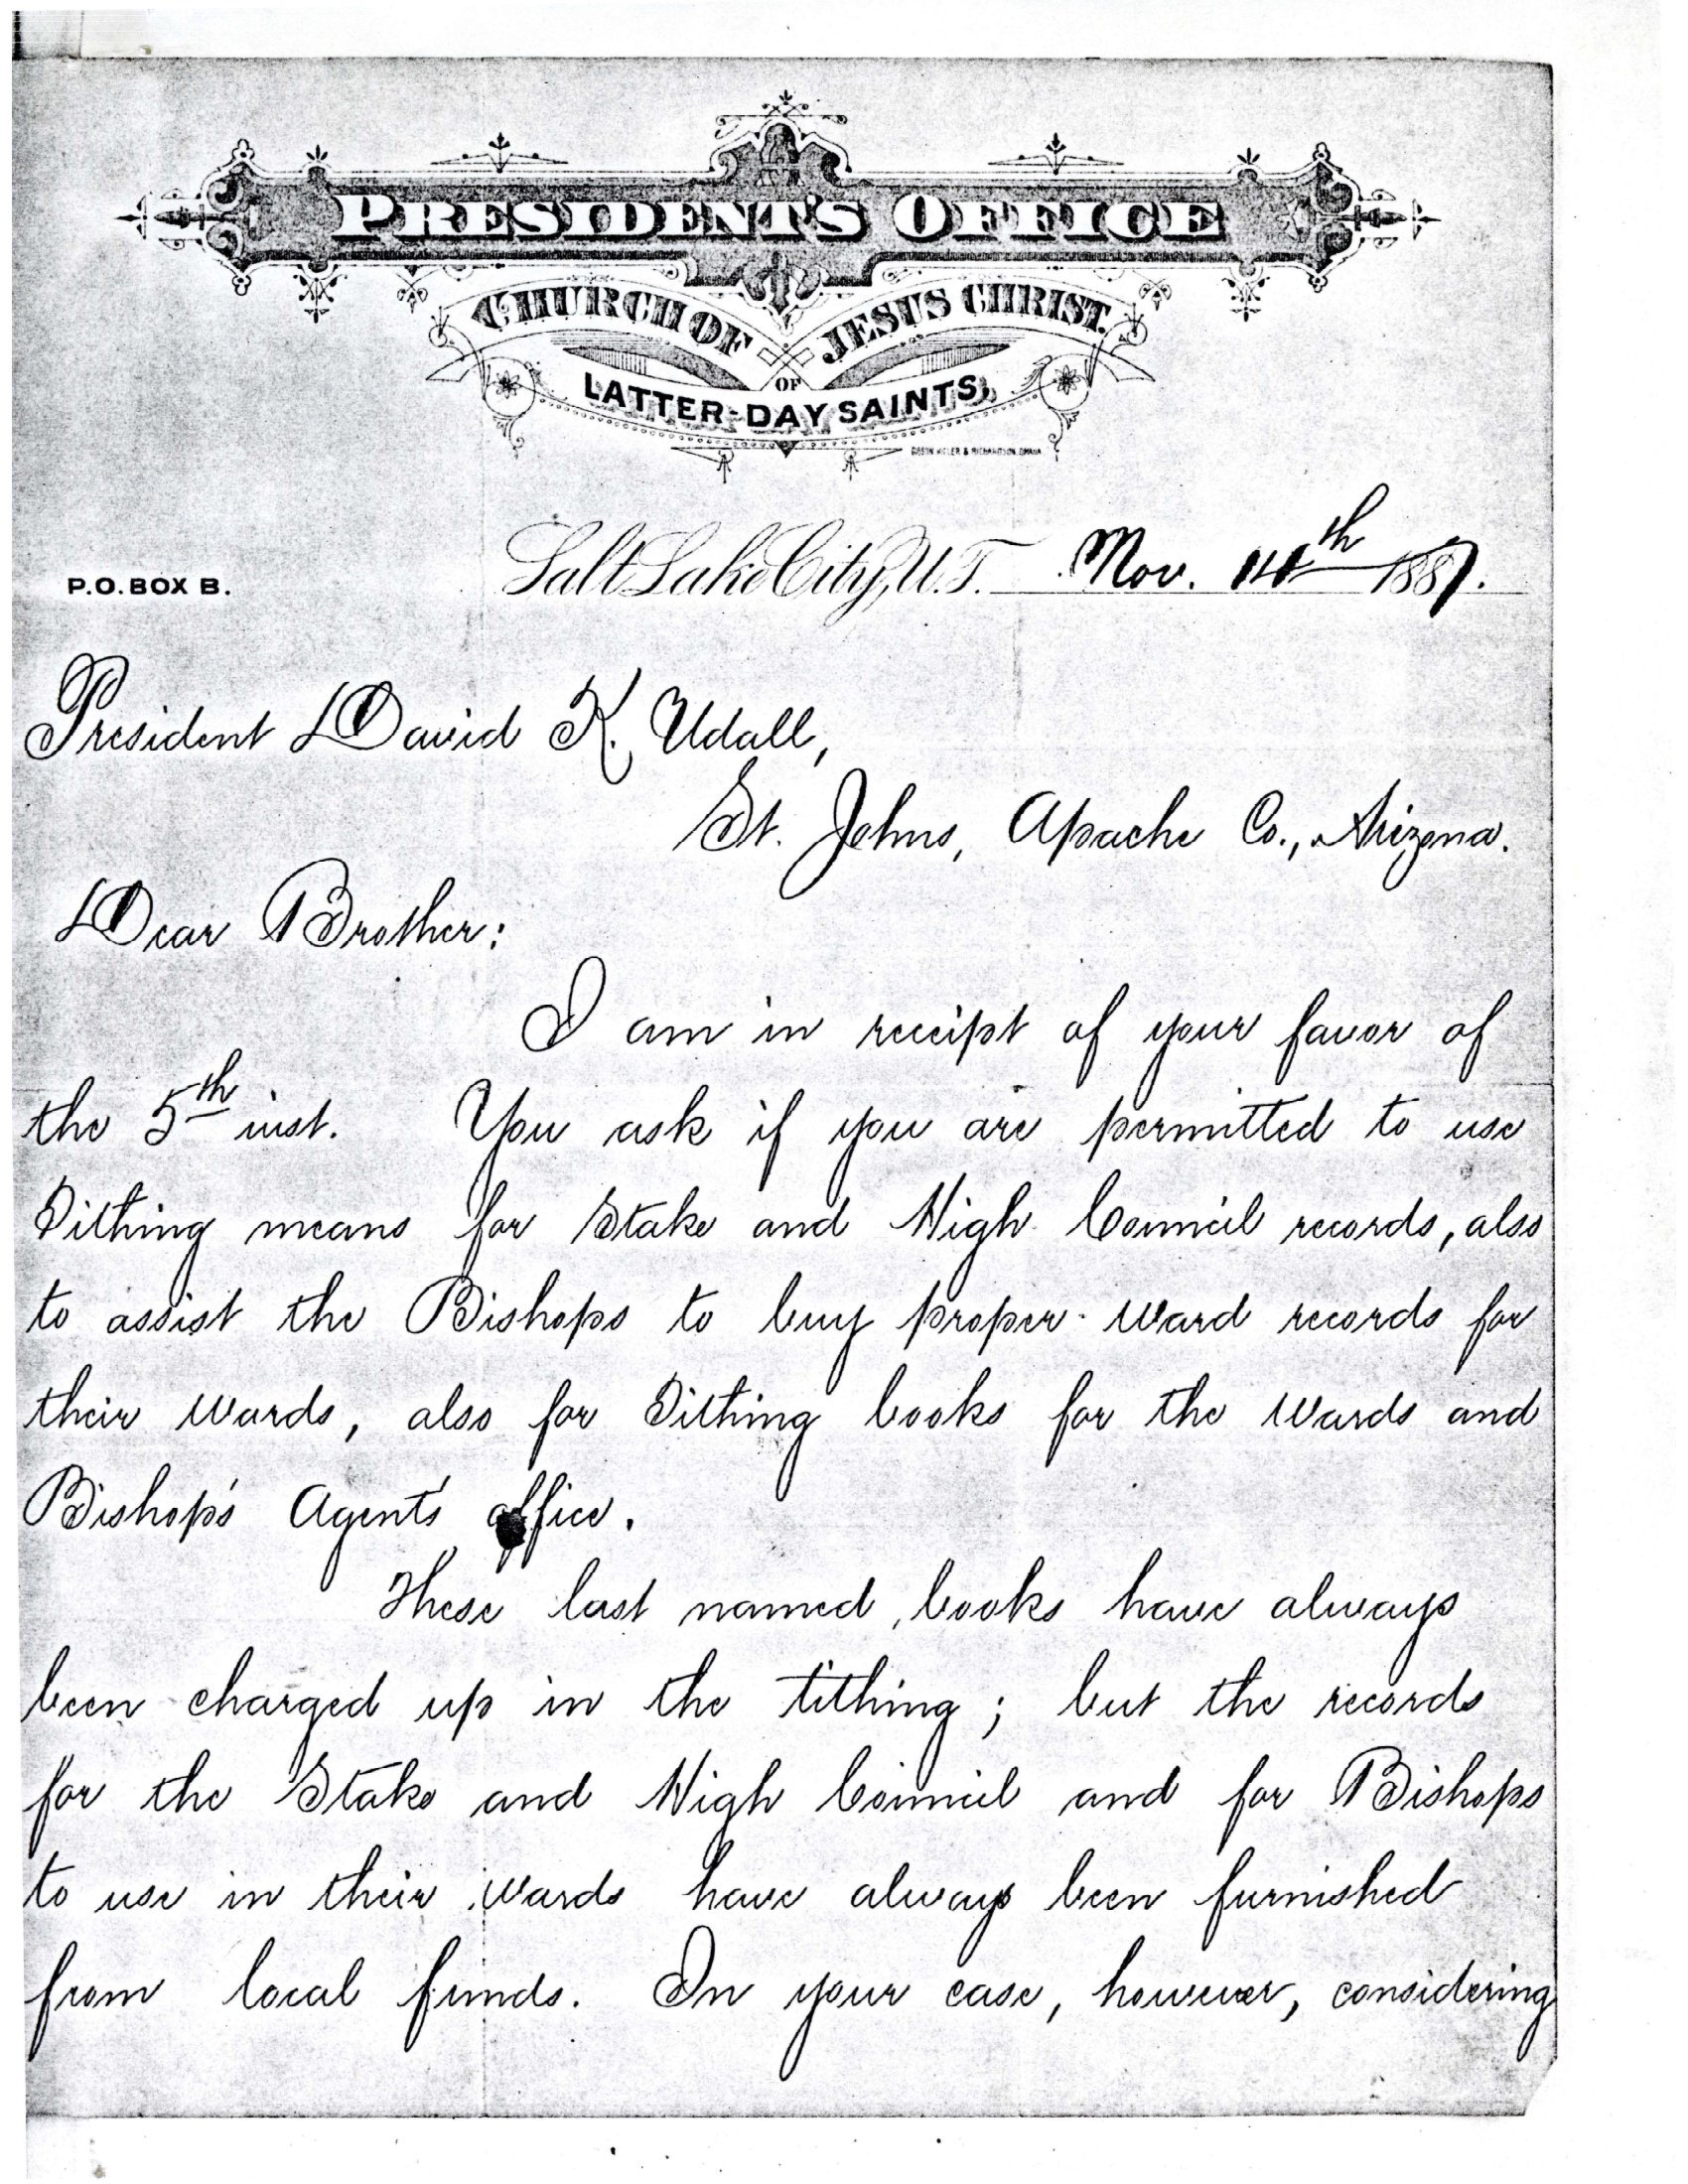 PRESIDENT'S OFFICE
CHURCH OF JESUS CHRIST
OF
LATTER-DAY SAINTS,
P.O. BOX B.
Salt Lake City, U.T. Nov. 14th 1887.
President David K. Udall,
St. Johns, Apache Co., Arizona.
Dear Brother:
I am in receipt of your favor of
the 5th inst. You ask if you are permitted to use
Tithing means for Stake and High Council records, also
to assist the Bishops to buy proper ward records for
their wards, also for Tithing books for the wards and
Bishop's Agent's office.
These last named, books have always
been charged up in the tithing; but the records
for the Stake and High Council and for Bishops
to use in their wards have always been furnished
from local funds. In your case, however, considering